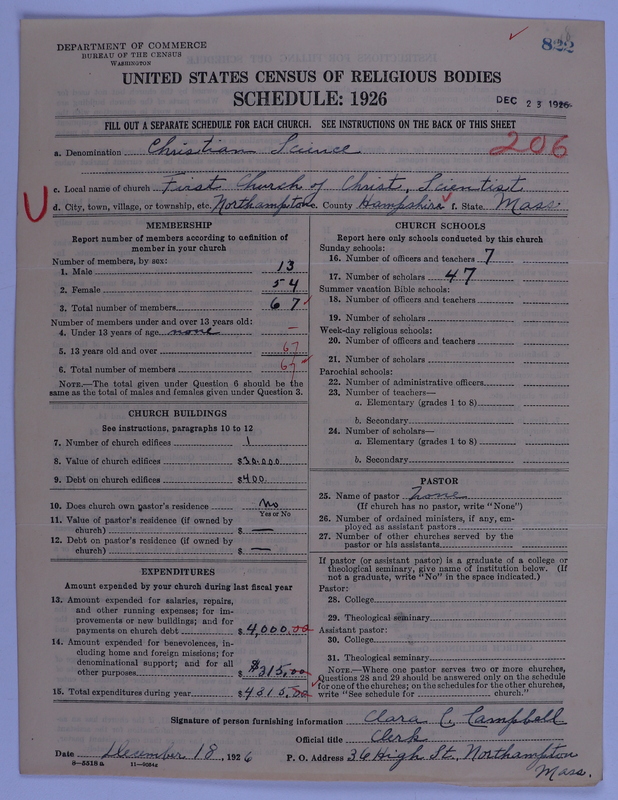 822
DEPARTMENT OF COMMERCE
BUREAU OF THE CENSUS
WASHINGTON
UNITED STATES CENSUS OF RELIGIOUS BODIES
SCHEDULE: 1926
DEC 23 1926
FILL OUT A SEPARATE SCHEDULE FOR EACH CHURCH. SEE INSTRUCTIONS ON THE BACK OF THIS SHEET
206
a. Denomination Christian Science
c. Local name of church First Church of Christ, Scientist
U d. City, town, village, or township, etc. Northampton e. County Hampshire f. State Mass.
MEMBERSHIP
Report number of members according to definition of
member in your church
Number of members, by sex:
1. Male 13
2. Female 54
3. Total number of members 67
Number of members under and over 13 years old:
4. Under 13 years of age none –
5. 13 years old and over 67
6. Total number of members 67
NOTE.—The total given under Question 6 should be the
same as the total of males and females given under Question 3.
CHURCH BUILDINGS
See instructions, paragraphs 10 to 12
7. Number of church edifices 1
8. Value of church edifices $30.000
9. Debt on church edifices $400
10. Does church own pastor's residence No
Yes or No
11. Value of pastor's residence (if owned by
church) $ —
12. Debt on pastor's residence (if owned by
church) $ —
EXPENDITURES
Amount expended by your church during last fiscal year
13. Amount expended for salaries, repairs,
and other running expenses; for im-
provements or new buildings; and for
payments on church debt $4,000.00
14. Amount expended for benevolences, in-
cluding home and foreign missions; for
denominational support; and for all
other purposes $ $315.00
15. Total expenditures during year $4315.00
CHURCH SCHOOLS
Report here only schools conducted by this church
Sunday schools:
16. Number of officers and teachers 7
17. Number of scholars 47
Summer vacation Bible schools:
18. Number of officers and teachers
19. Number of scholars
Week-day religious schools:
20. Number of officers and teachers
21. Number of scholars
Parochial schools:
22. Number of administrative officers
23. Number of teachers—
a. Elementary (grades 1 to 8)
b. Secondary
24. Number of scholars—
a. Elementary (grades 1 to 8)
b. Secondary
PASTOR
25. Name of pastor none
(If church has no pastor, write "None")
26. Number of ordained ministers, if any, em-
ployed as assistant pastors
27. Number of other churches served by the
pastor or his assistants
If pastor (or assistant pastor) is a graduate of a college or
theological seminary, give name of institution below. (If
not a graduate, write "No" in the space indicated.)
Pastor:
28. College
29. Theological seminary
Assistant pastor:
30. College
31. Theological seminary
NOTE.—Where one pastor serves two or more churches,
Questions 28 and 29 should be answered only on the schedule
for one of the churches; on the schedules for the other churches,
write "See schedule for church."
Signature of person furnishing information Clara C. Campbell
Official title Clerk
Date December 18, 1926 P. O. Address 36 High St, Northampton
Mass.
8-5518a 11-9264a